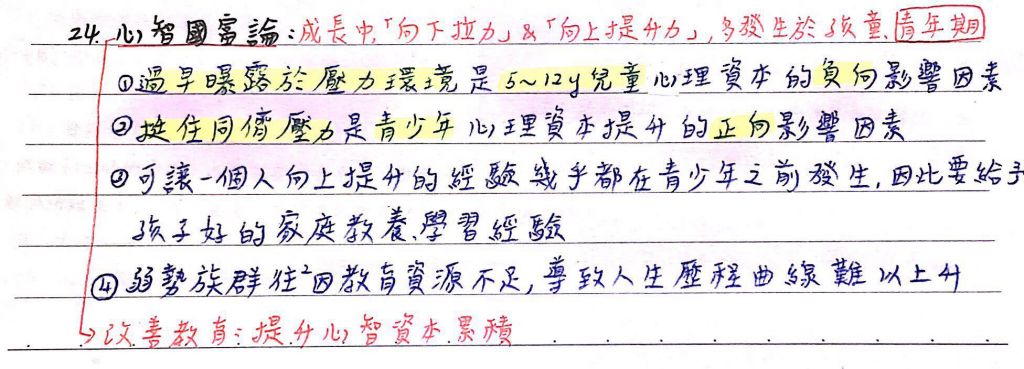 24. 心智國富論:成長中,「向下拉力」&「向上提升力」,多發生於孩童、青年期
①過早曝露於壓力環境是5~12y兒童心理資本的負向影響因素
②挺住同儕壓力是青少年心理資本提升的正向影響因素
③可讓一個人向上提升的經驗幾乎都在青少年之前發生,因此要給予
孩子好的家庭教養、學習經驗
④弱勢族群往²因教育資源不足,導致人生歷程曲線難以上升
→改善教育:提升心智資本累積